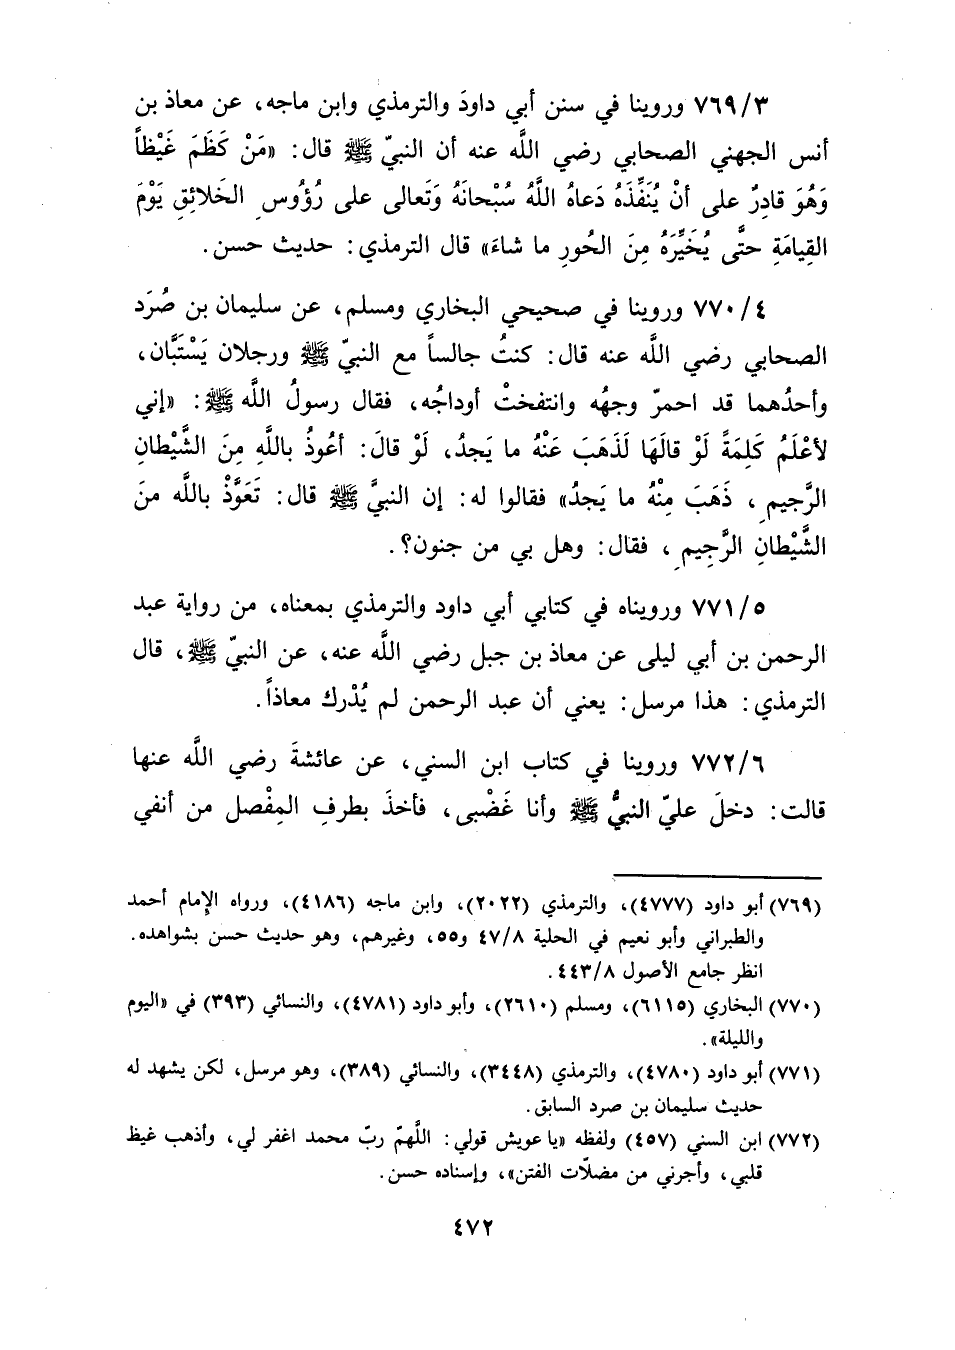 ٧٦٩/٣ وروينا في سنن أبي داودَ والترمذي وابن ماجه، عن معاذ بن
أنس الجهني الصحابي رضي اللَّه عنه أن النبيّ ﷺ قال: «مَنْ كَظَمَ غَيْظاً
وَهُوَ قادِرٌ على أنْ يُنَفِّذَهُ دَعاهُ اللَّهُ سُبْحانَهُ وَتَعالى على رُؤُوسِ الخَلائِقِ يَوْمَ
القِيامَةِ حتَّى يُخَيِّرَهُ مِنَ الحُورِ ما شاءَ» قال الترمذي: حديث حسن.
٧٧٠/٤ وروينا في صحيحي البخاري ومسلم، عن سليمان بن صُرَد
الصحابي رضي اللَّه عنه قال: كنتُ جالساً مع النبيّ ﷺ ورجلان يَسْتَبَّان،
وأحدُهما قد احمرّ وجهُه وانتفختْ أوداجُه، فقال رسولُ اللَّه ﷺ: «إني
لأعْلَمُ كَلِمَةً لَوْ قالَهَا لَذَهَبَ عَنْهُ ما يَجدُ، لَوْ قالَ: أعُوذُ باللَّهِ مِنَ الشَّيْطانِ
الرَّجيمِ، ذَهَبَ مِنْهُ ما يَجدُ» فقالوا له: إن النبيَّ ﷺ قال: تَعَوَّذْ باللَّه منَ
الشَّيْطانِ الرَّجِيمِ، فقال: وهل بي من جنون؟.
٧٧١/٥ ورويناه في كتابي أبي داود والترمذي بمعناه، من رواية عبد
الرحمن بن أبي ليلى عن معاذ بن جبل رضي اللَّه عنه، عن النبيّ ﷺ، قال
الترمذي: هذا مرسل: يعني أن عبد الرحمن لم يُدْرك معاذاً.
٧٧٢/٦ وروينا في كتاب ابن السني، عن عائشةَ رضي اللَّه عنها
قالت: دخلَ عليّ النبيُّ ﷺ وأنا غَضْبى، فأخذَ بطرفِ المِفْصل من أنفي
(٧٦٩) أبو داود (٤٧٧٧)، والترمذي (٢٠٢٢)، وابن ماجه (٤١٨٦)، ورواه الإمام أحمد
والطبراني وأبو نعيم في الحلية ٤٧/٨ و٥٥، وغيرهم، وهو حديث حسن بشواهده.
انظر جامع الأصول ٤٤٣/٨.
(٧٧٠) البخاري (٦١١٥)، ومسلم (٢٦١٠)، وأبو داود (٤٧٨١)، والنسائي (٣٩٣) في «اليوم
والليلة».
(٧٧١) أبو داود (٤٧٨٠)، والترمذي (٣٤٤٨)، والنسائي (٣٨٩)، وهو مرسل، لكن يشهد له
حديث سليمان بن صرد السابق.
(٧٧٢) ابن السني (٤٥٧) ولفظه «يا عويش قولي: اللَّهمّ ربّ محمد اغفر لي، وأذهب غيظ
قلبي، وأجرني من مضلّات الفتن»، وإسناده حسن.
٤٧٢